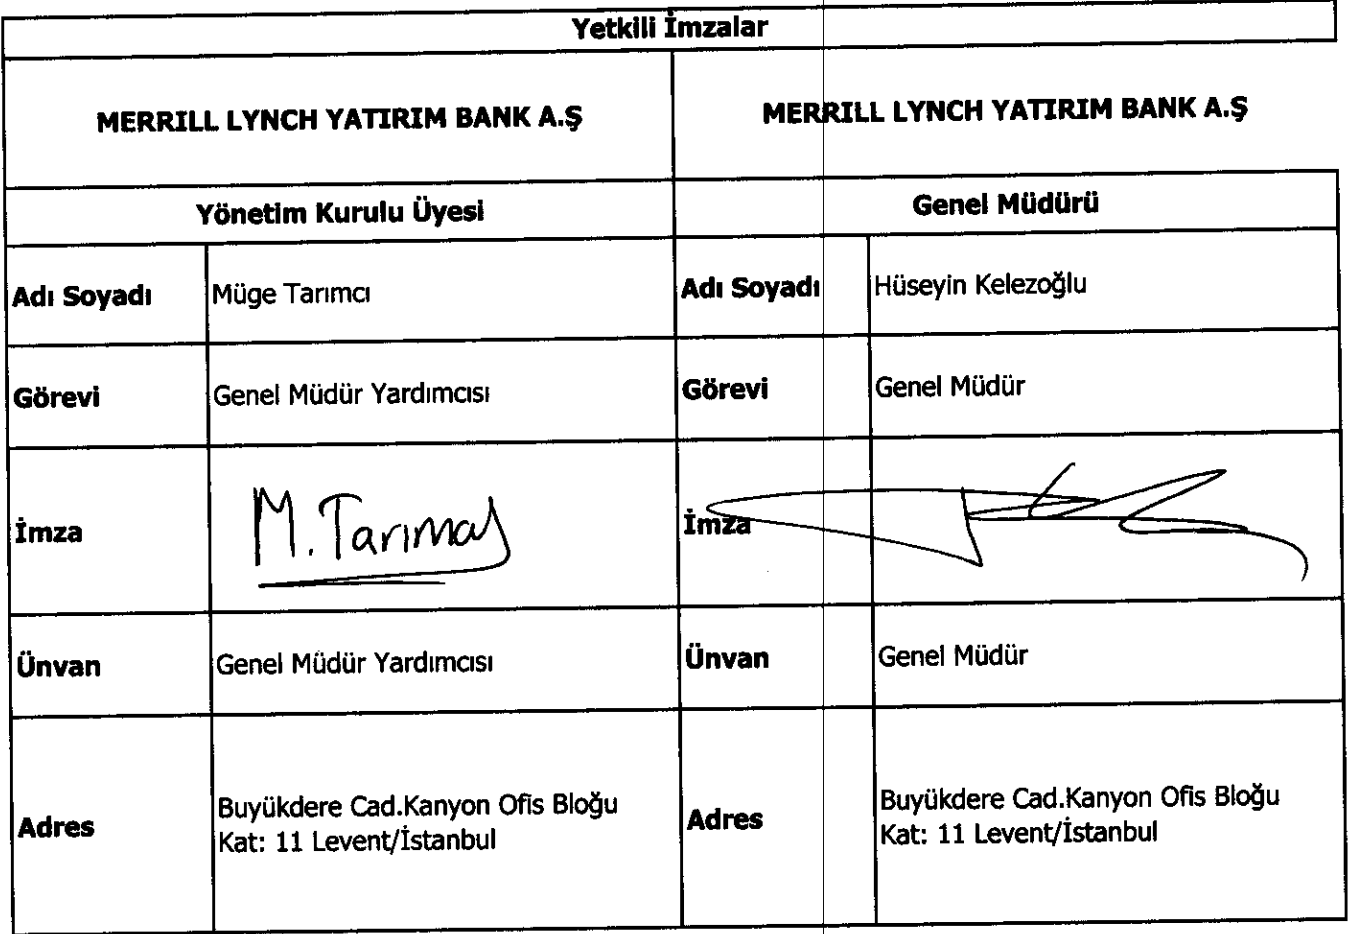 Yetkili İmzalar
MERRILL LYNCH YATIRIM BANK A.Ş
MERRILL LYNCH YATIRIM BANK A.Ş
Yönetim Kurulu Üyesi
Genel Müdürü
Adı Soyadı
Müge Tarımcı
Adı Soyadı
Hüseyin Kelezoğlu
Görevi
Genel Müdür Yardımcısı
Görevi
Genel Müdür
İmza
M. Tarımcı
İmza
Ünvan
Genel Müdür Yardımcısı
Ünvan
Genel Müdür
Adres
Buyükdere Cad.Kanyon Ofis Bloğu
Kat: 11 Levent/İstanbul
Adres
Buyükdere Cad.Kanyon Ofis Bloğu
Kat: 11 Levent/İstanbul